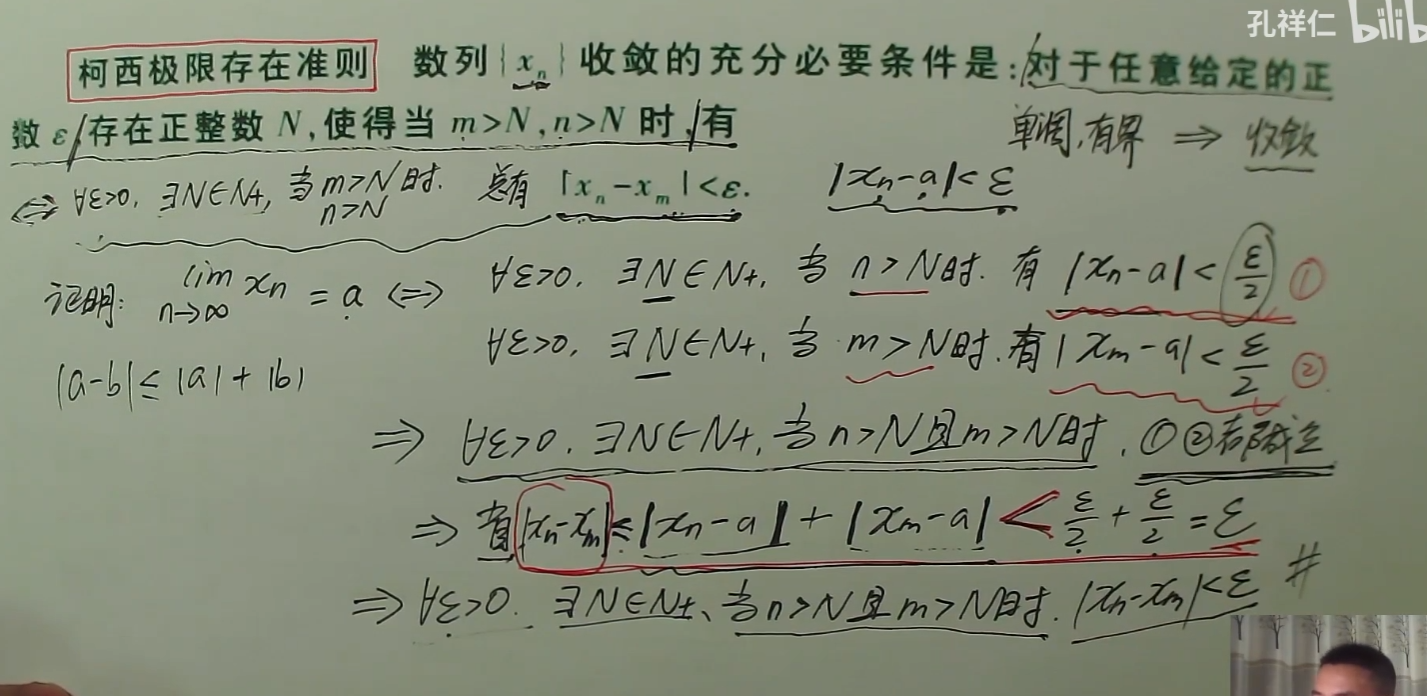 孔祥仁 bilib
柯西极限存在准则 数列{xₙ}收敛的充分必要条件是:对于任意给定的正
数 ε,存在正整数 N,使得当 m>N,n>N 时,有
单调,有界 ⇒ 收敛
⇔ ∀ε>0, ∃N∈N+, 当m>N时. 总有 |xₙ-xₘ|<ε. |xn-a|<ε
n>N
证明: lim xn = a ⇔ ∀ε>0, ∃N∈N+, 当 n>N时. 有 |xn-a|<ε/2 ①
n→∞
∀ε>0, ∃N∈N+, 当 m>N时. 有 |xm-a|<ε/2 ②
|a-b|≤|a|+|b|
⇒ ∀ε>0, ∃N∈N+, 当n>N且m>N时, ①②都成立
⇒ 有|xn-xm|≤|xn-a|+|xm-a|<ε/2+ε/2=ε
⇒ ∀ε>0. ∃N∈N+、当n>N且m>N时. |xn-xm|<ε #